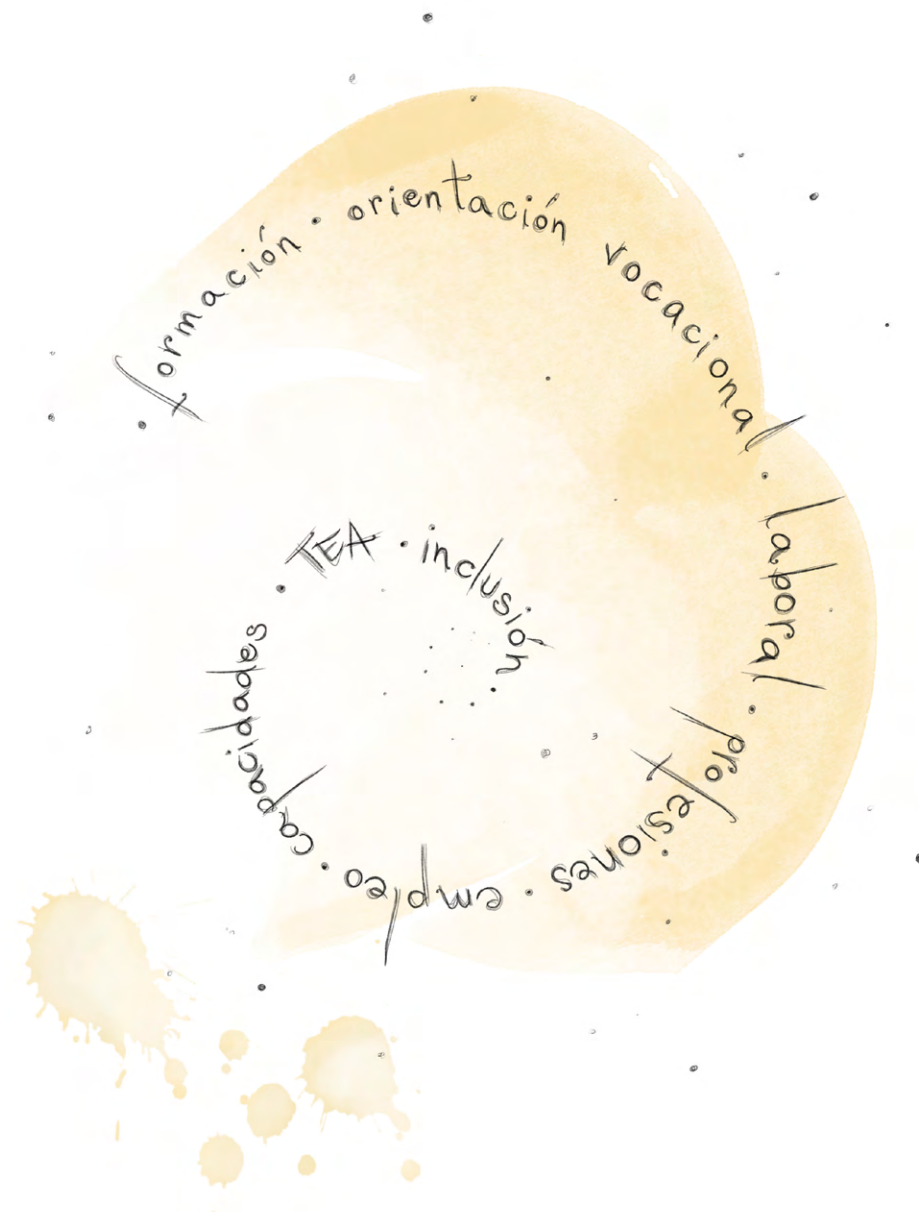 formación · orientación vocacional · laboral · profesiones · empleo · capacidades · TEA · inclusión ·